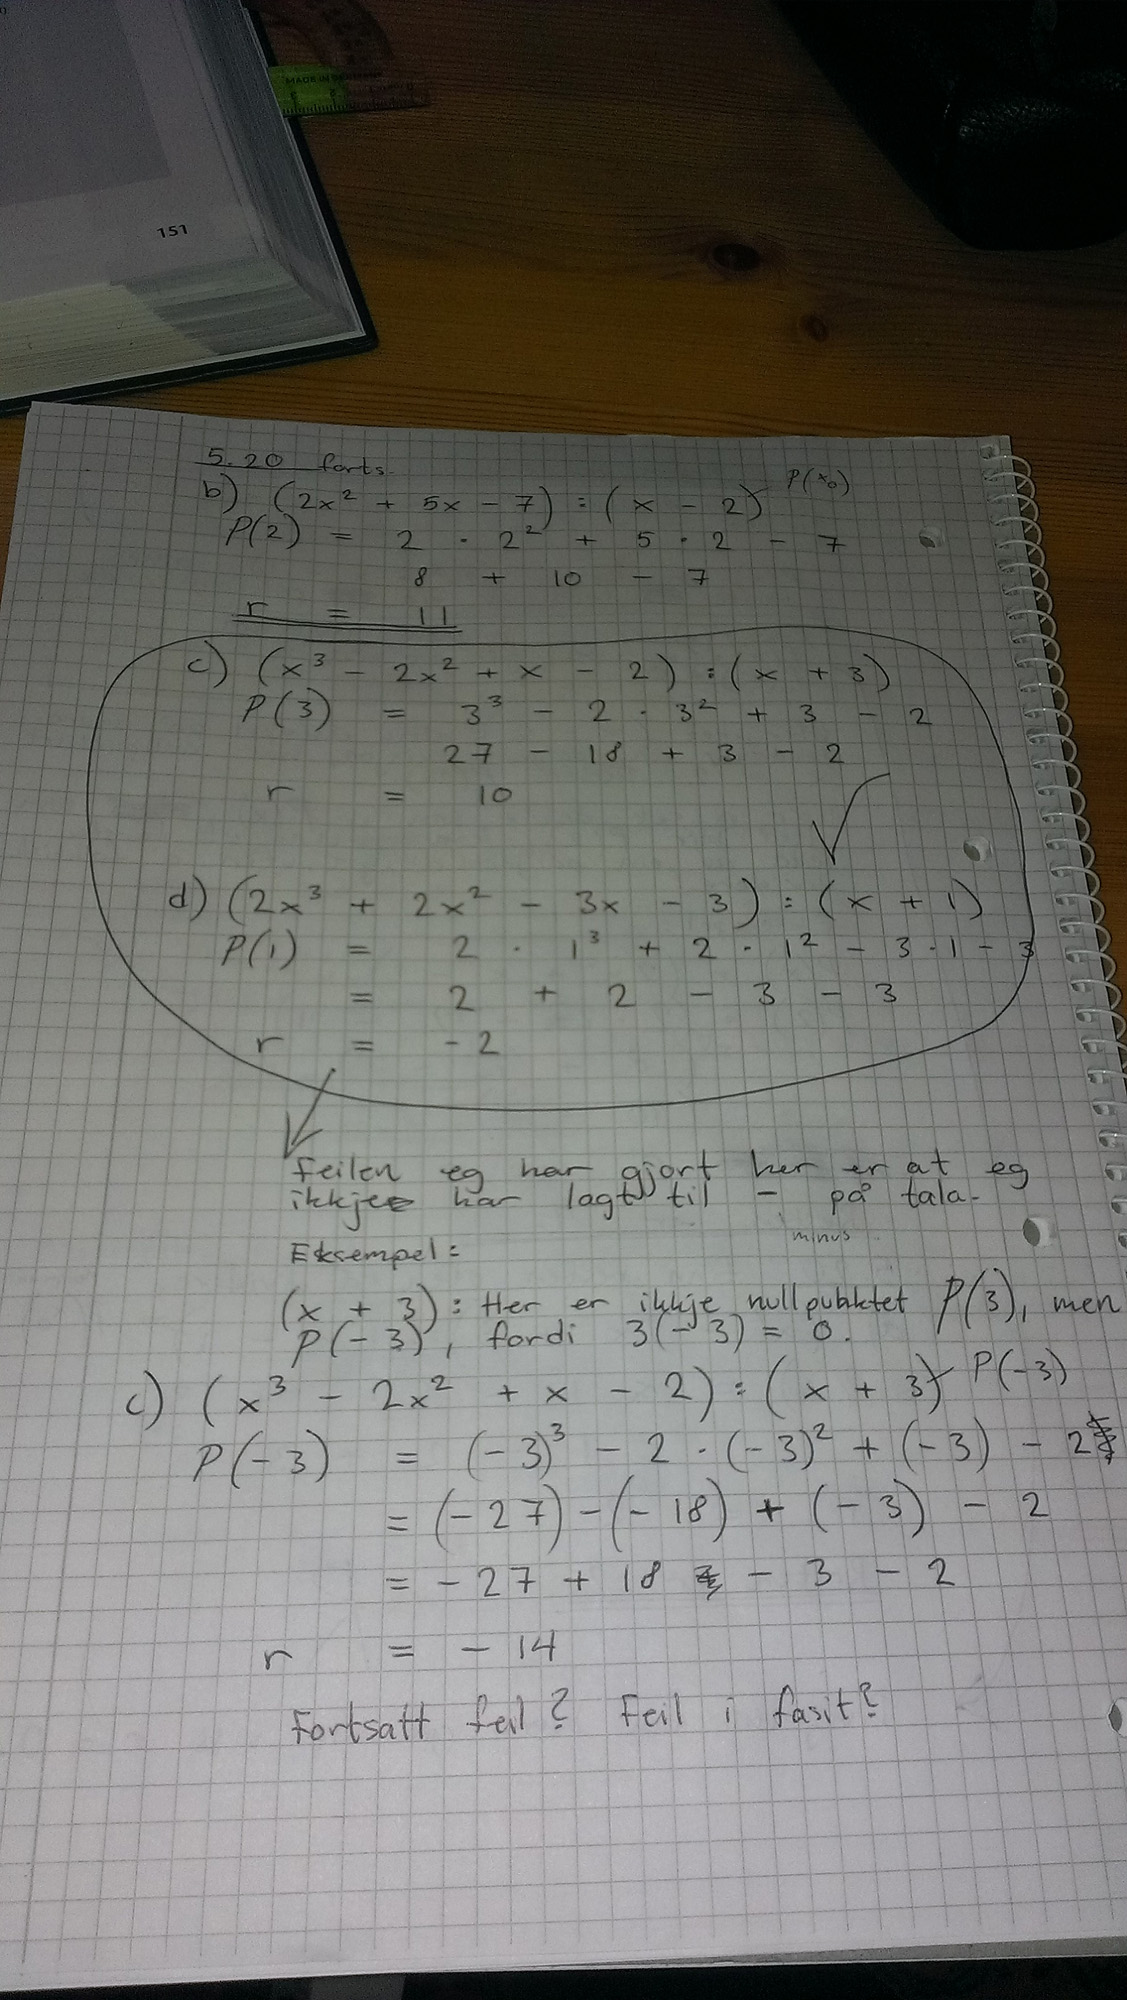 MADE IN
151
5.20 forts.
b) (2x² + 5x - 7) : (x - 2) P(x₀)
P(2) = 2 · 2² + 5 · 2 - 7
8 + 10 - 7
r = 11
c) (x³ - 2x² + x - 2) : (x + 3)
P(3) = 3³ - 2 · 3² + 3 - 2
27 - 18 + 3 - 2
r = 10
d) (2x³ + 2x² - 3x - 3) : (x + 1)
P(1) = 2 · 1³ + 2 · 1² - 3 · 1 - 3
= 2 + 2 - 3 - 3
r = -2
Feilen eg har gjort her er at eg
ikkje har lagt til - på tala.
minus
Eksempel:
(x + 3) : Her er ikkje nullpunktet P(3), men
P(-3), fordi 3(-3) = 0.
c) (x³ - 2x² + x - 2) : (x + 3) P(-3)
P(-3) = (-3)³ - 2 · (-3)² + (-3) - 2
= (-27) - (-18) + (-3) - 2
= -27 + 18 - 3 - 2
r = -14
Fortsatt feil? Feil i fasit?